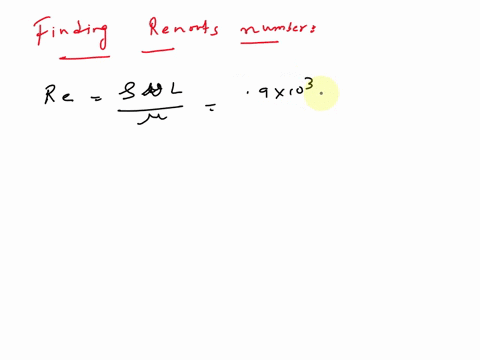 Finding Renorts number:
Re = ρ v L / μ = .9×10³ .